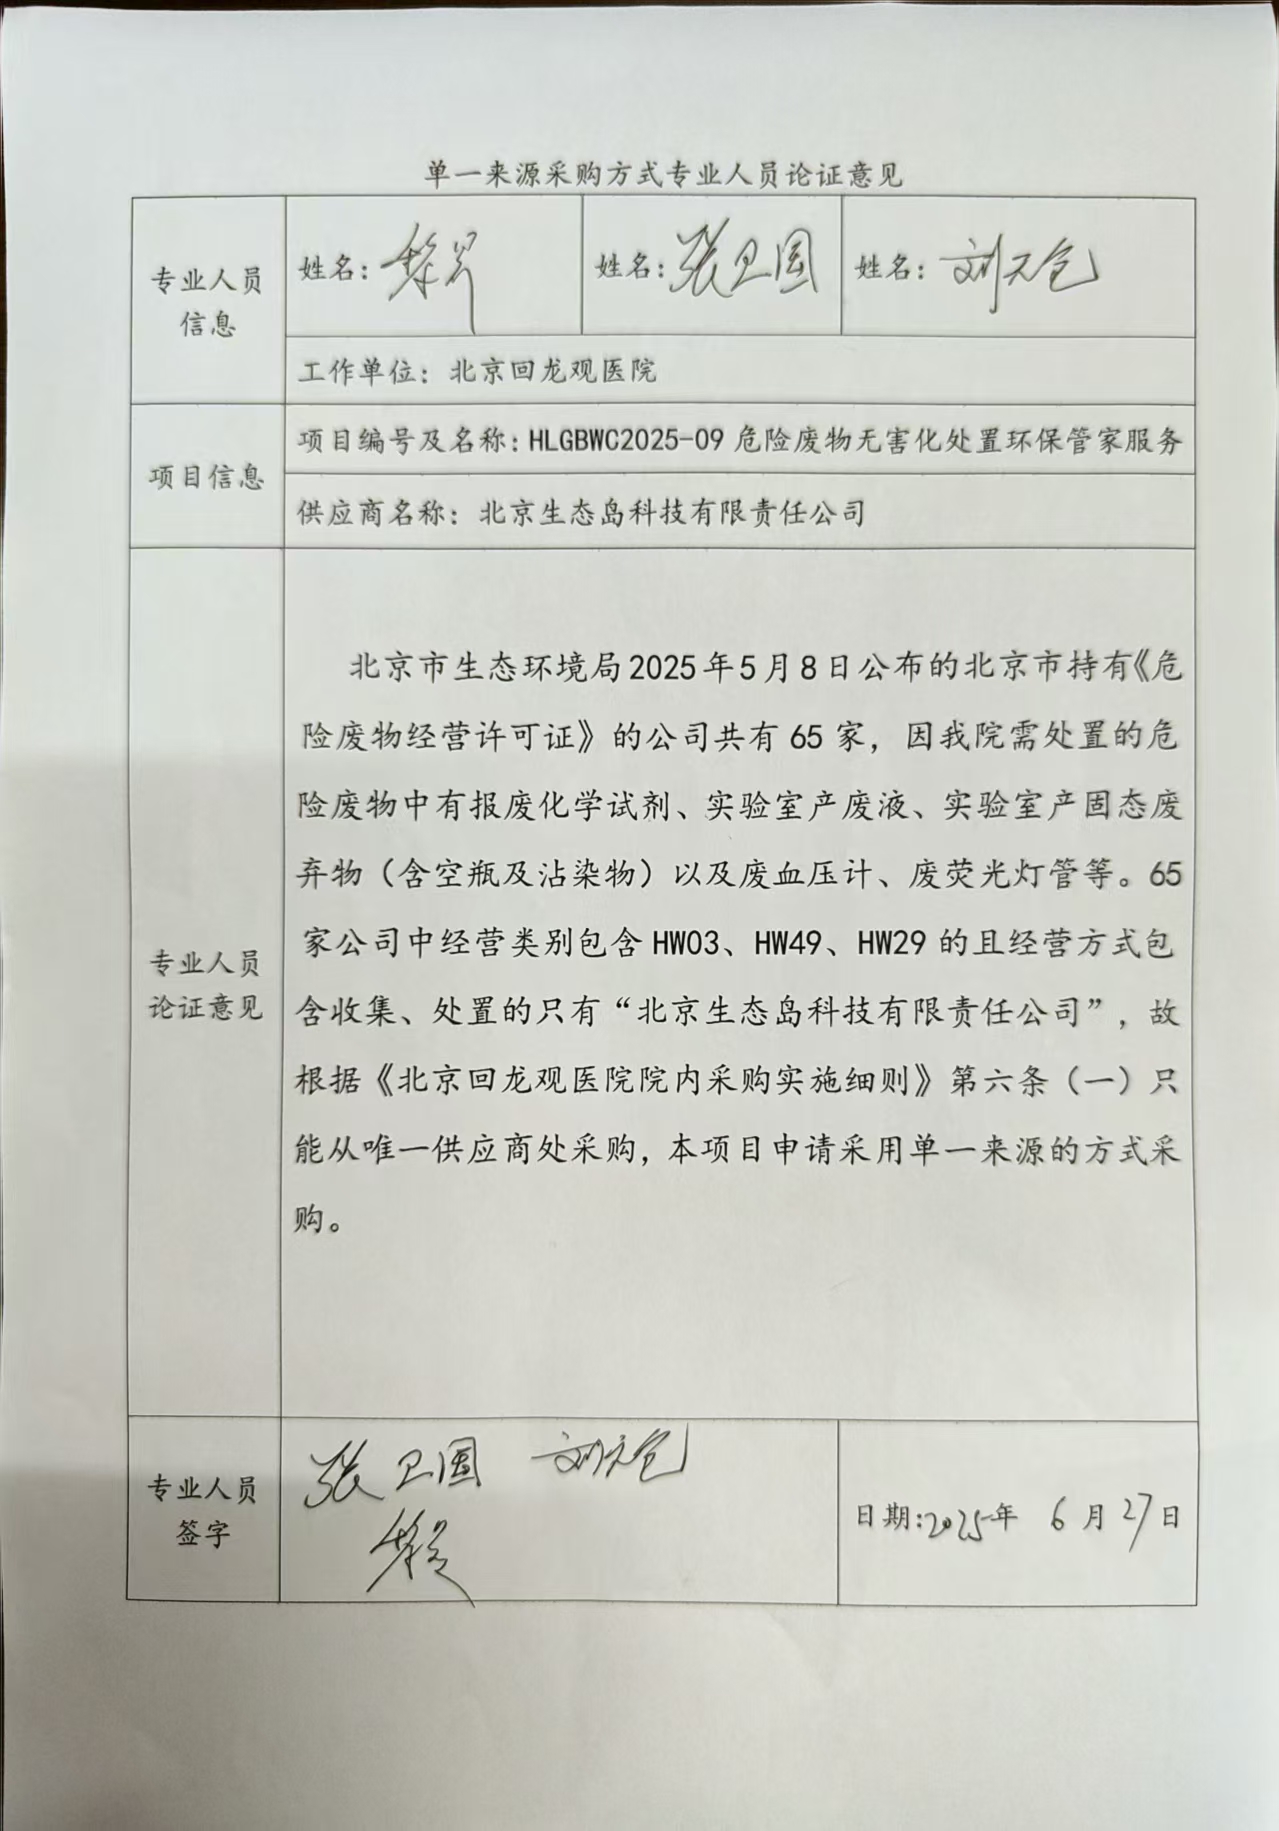 单一来源采购方式专业人员论证意见
专业人员
信息
姓名：
姓名：张卫国
姓名：刘天仓
工作单位：北京回龙观医院
项目信息
项目编号及名称：HLGBWC2025-09 危险废物无害化处置环保管家服务
供应商名称：北京生态岛科技有限责任公司
专业人员
论证意见
北京市生态环境局2025年5月8日公布的北京市持有《危
险废物经营许可证》的公司共有 65 家，因我院需处置的危
险废物中有报废化学试剂、实验室产废液、实验室产固态废
弃物（含空瓶及沾染物）以及废血压计、废荧光灯管等。65
家公司中经营类别包含 HW03、HW49、HW29 的且经营方式包
含收集、处置的只有“北京生态岛科技有限责任公司”，故
根据《北京回龙观医院院内采购实施细则》第六条（一）只
能从唯一供应商处采购，本项目申请采用单一来源的方式采
购。
专业人员
签字
张卫国 刘天仓
日期：2025年 6月27日